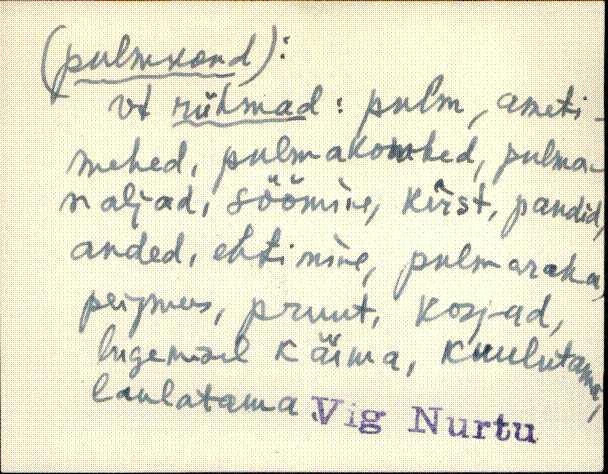 (pulmkond):
vt rühmad: pulm, ameti-
mehed, pulmakombed, pulma-
naljad, söömine, kirst, pandid,
anded, ehtimine, pulmaraha,
peigmees, pruut, kosjad,
lugemisel käima, kuulutama,
laulatama Vig Nurtu